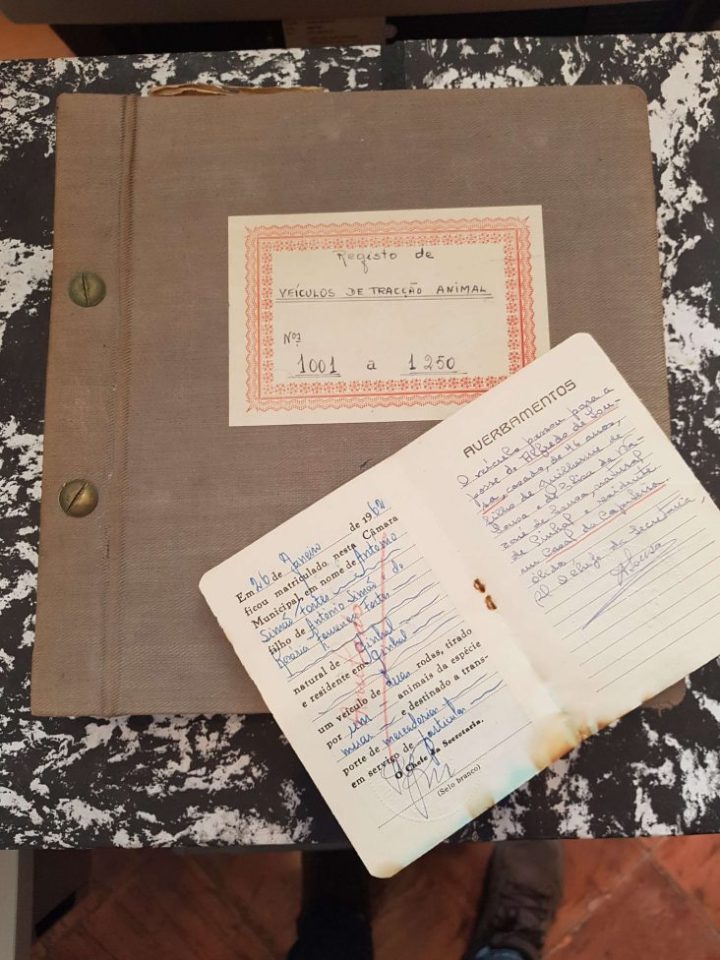 Registo de
VEÍCULOS DE TRACÇÃO ANIMAL
Nos
1001 a 1250
Em 26 de Janeiro de 1962
ficou matriculado nesta Câmara
Municipal, em nome de António
Simão Fortes
filho de Antonio Simão e de
Lourenço Fortes
natural de Pinhal
e residente em Pinhal
um veículo de duas rodas, tirado
por um animais da espécie
muar e destinado a trans-
porte de mercadorias
em serviço de particular
O Chefe da Secretaria,
(Selo branco)
AVERBAMENTOS
O veículo passou para a
posse de Alfredo de Sou-
sa, casado, de 46 anos,
filho de Guilherme de
Sousa e de
natural
de Pinhal e residente
em Casal da
O Chefe da Secretaria,